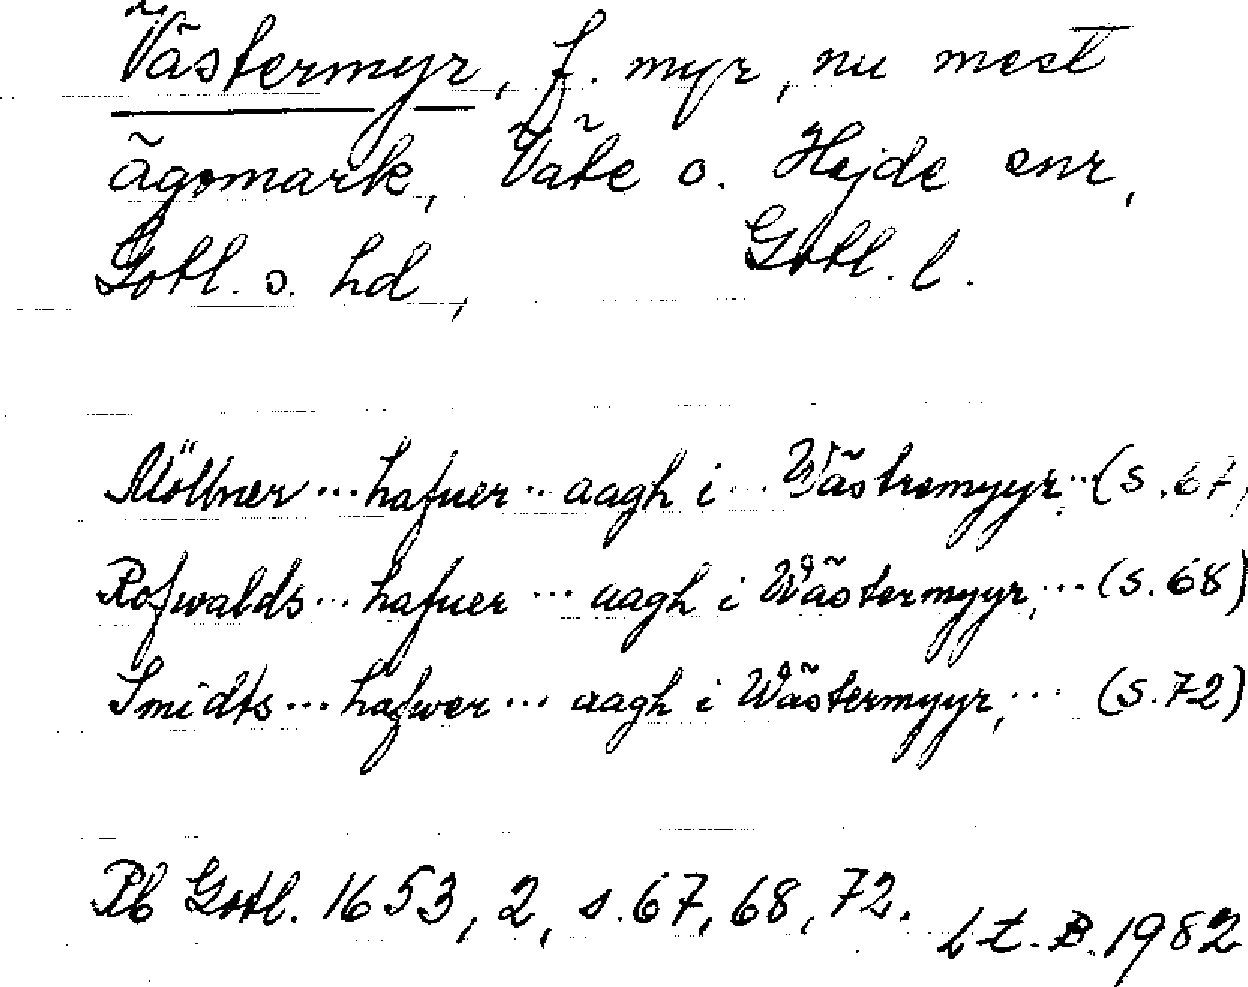 Västermyr, f. myr, nu mest
ägomark, Väte o. Hejde snr,
Gotl. s. hd, Gotl. l.
Möllner ... hafuer ... aagh i ... Wästremyyr ... (s. 67)
Rofwalds ... hafuer ... aagh i Wästermyyr, ... (s. 68)
Smidts ... hafwer ... aagh i Wästermyyr, ... (s. 72)
Rb Gotl. 1653, 2, s. 67, 68, 72.
1982